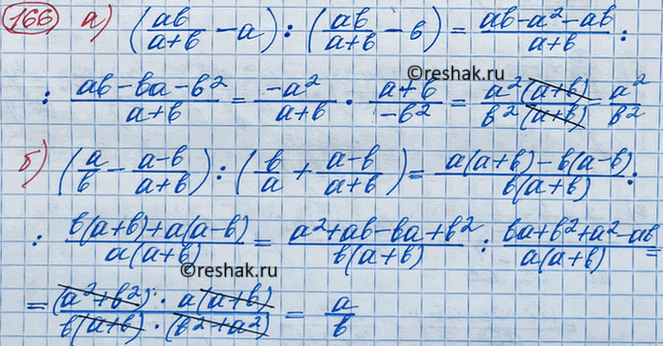 166 а) (ab/(a+b) − a) : (ab/(a+b) − b) = (ab−a²−ab)/(a+b) :
©reshak.ru
: (ab−ba−b²)/(a+b) = −a²/(a+b) · (a+b)/−b² = a²(a+b)/b²(a+b) = a²/b²
б) (a/b − (a−b)/(a+b)) : (b/a + (a−b)/(a+b)) = (a(a+b)−b(a−b))/b(a+b) :
: (b(a+b)+a(a−b))/a(a+b) = (a²+ab−ba+b²)/b(a+b) : (ba+b²+a²−ab)/a(a+b) =
©reshak.ru
= (a²+b²)·a(a+b)/b(a+b)·(b²+a²) = a/b